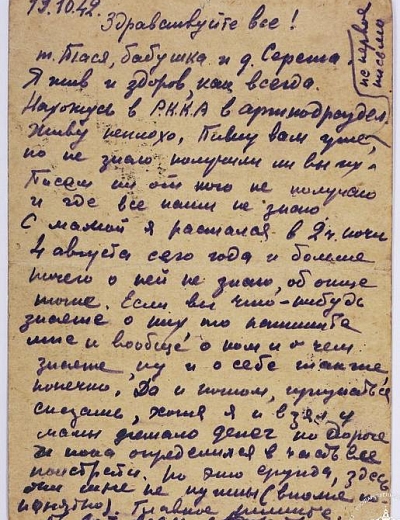 13.10.42
Здравствуйте все!
не первое
письмо
т. Тася, бабушка и д. Сережа.
Я жив и здоров, как всегда.
Нахожусь в РККА в артподраздел.
Живу неплохо, Пишу вам уже,
но не знаю получили ли вы их.
Писем ни от кого не получаю
и где все наши не знаю
С мамой я расстался в 2 ч. ночи
4 августа сего года и больше
ничего о ней не знаю, об отце
тоже. Если вы что-нибудь
знаете о них то напишите
мне и вообще о ком и о чем
знаете, ну и о себе также
конечно. Да и потом, признаться
сказать, хотя я и взял у
мамы немало денег но дорогой
и пока определился в часть все
поистратил. Но это ерунда, здесь
они мне не нужны (вполне
понятно). Главное пишите